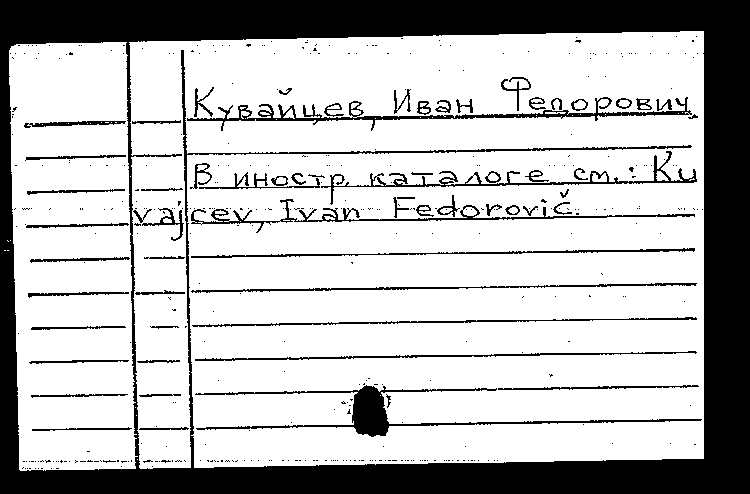 Кувайцев, Иван Федорович
В иностр. каталоге см.: Ku
vajcev, Ivan Fedorovič.